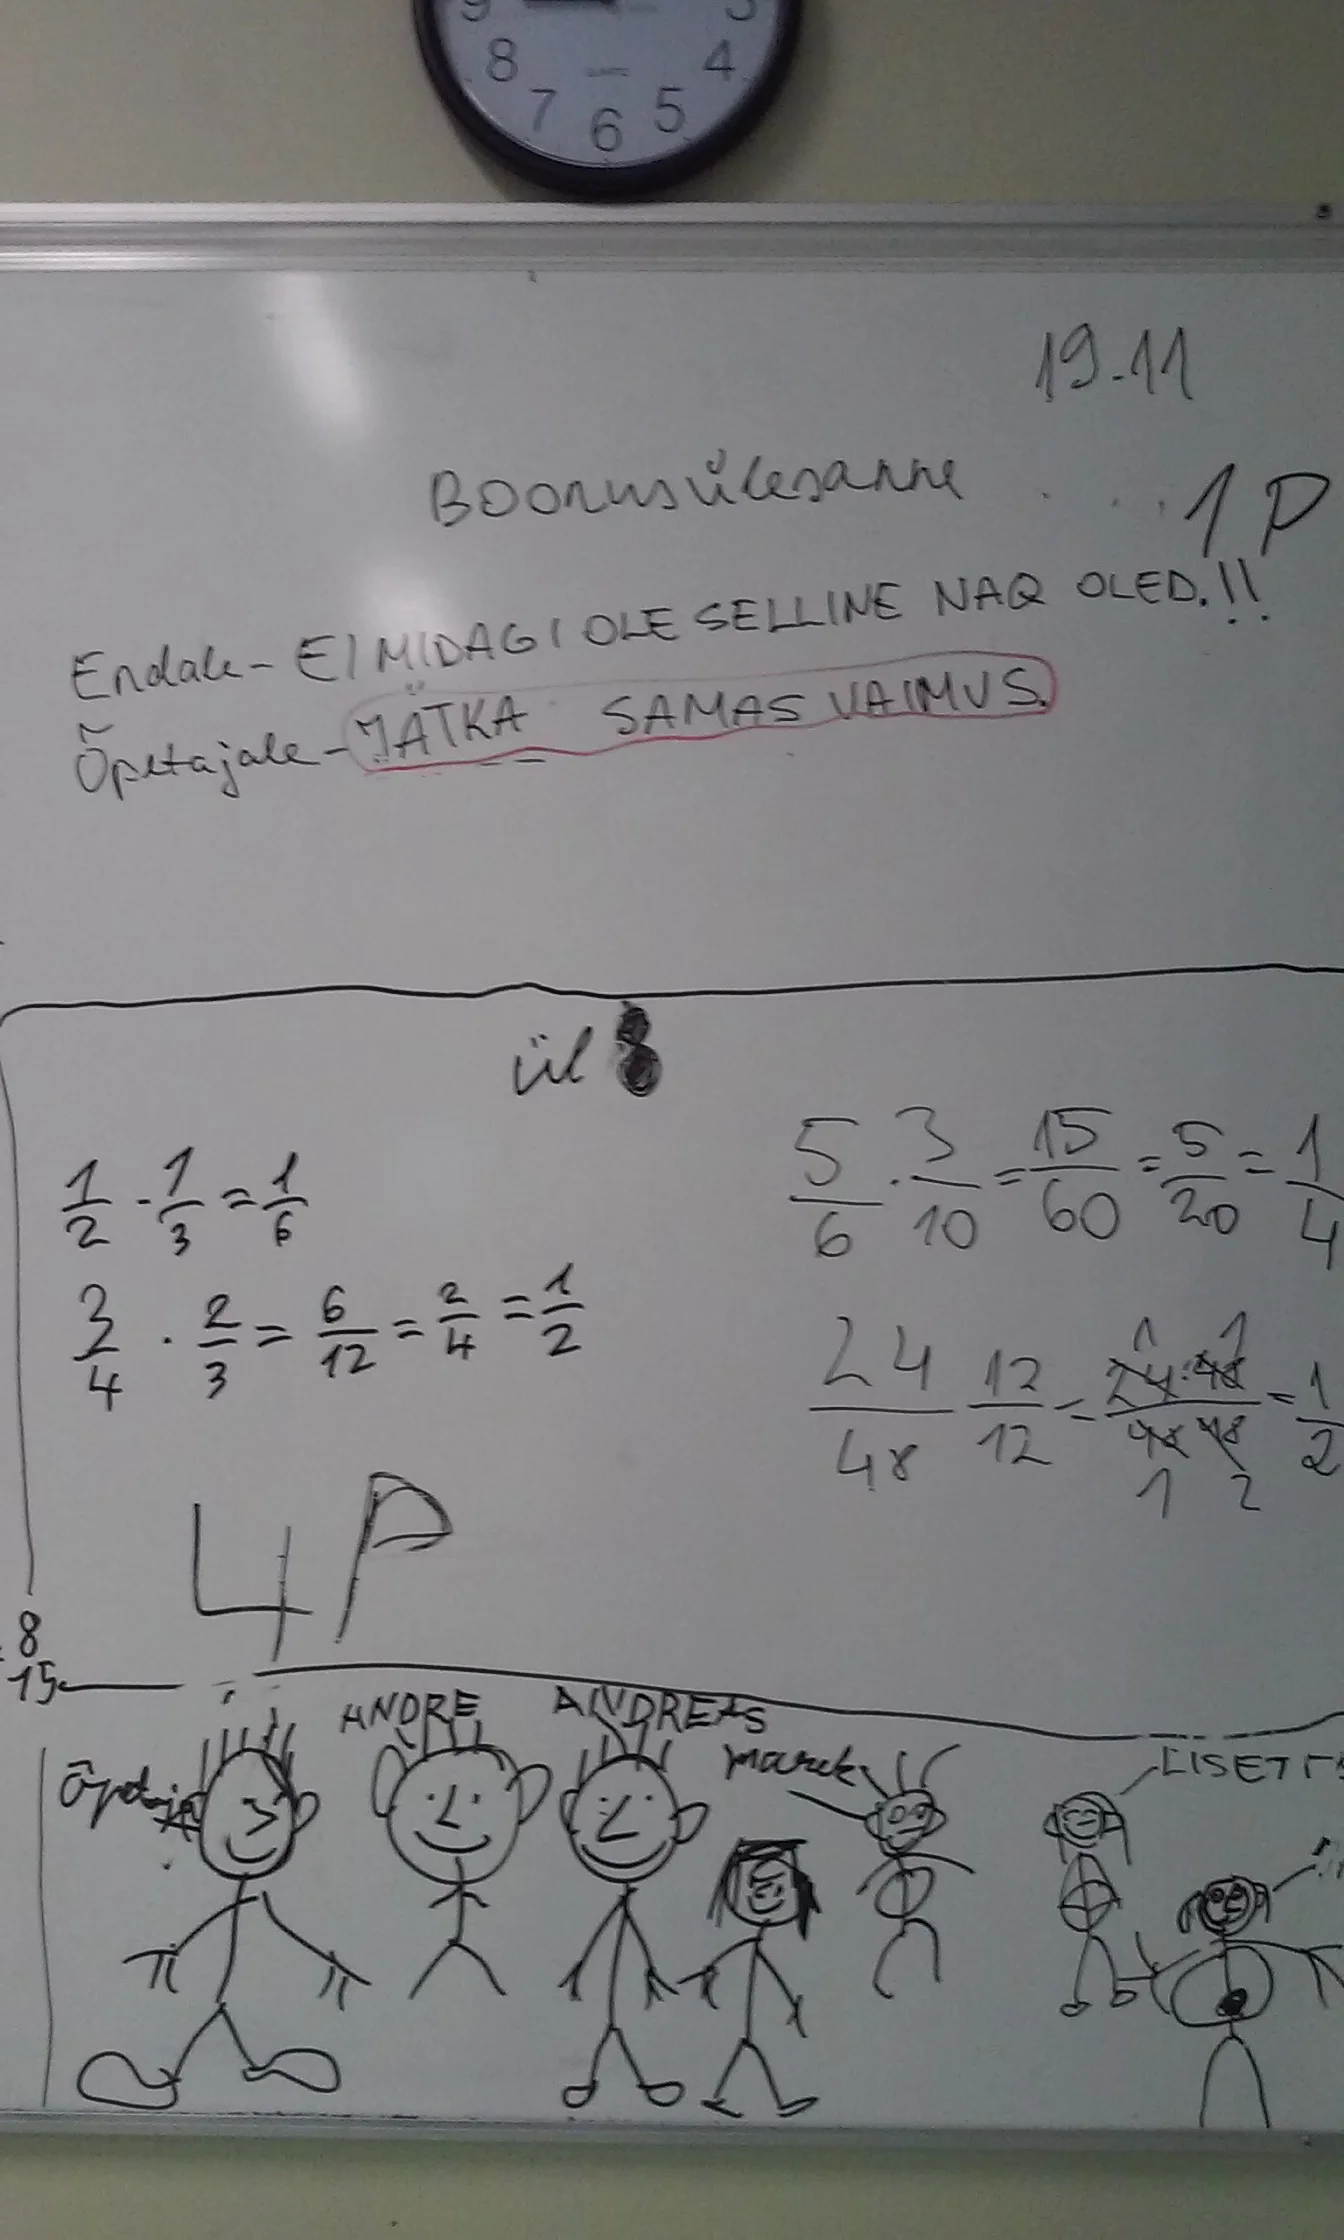 9 8 7 6 5 4 3
19.11
Boonusülesanne . . . . 1 P
Endale - EI MIDAGI OLE SELLINE NAQ OLED.!!
Õpetajale - JÄTKA SAMAS VAIMUS.
ül 8
1/2 · 1/3 = 1/6
5/6 · 3/10 = 15/60 = 5/20 = 1/4
3/4 · 2/3 = 6/12 = 2/4 = 1/2
24/48 12/12 = = 1/2
4P
8
15
ANDRE ANDREAS
Õpetaja marek LISETT